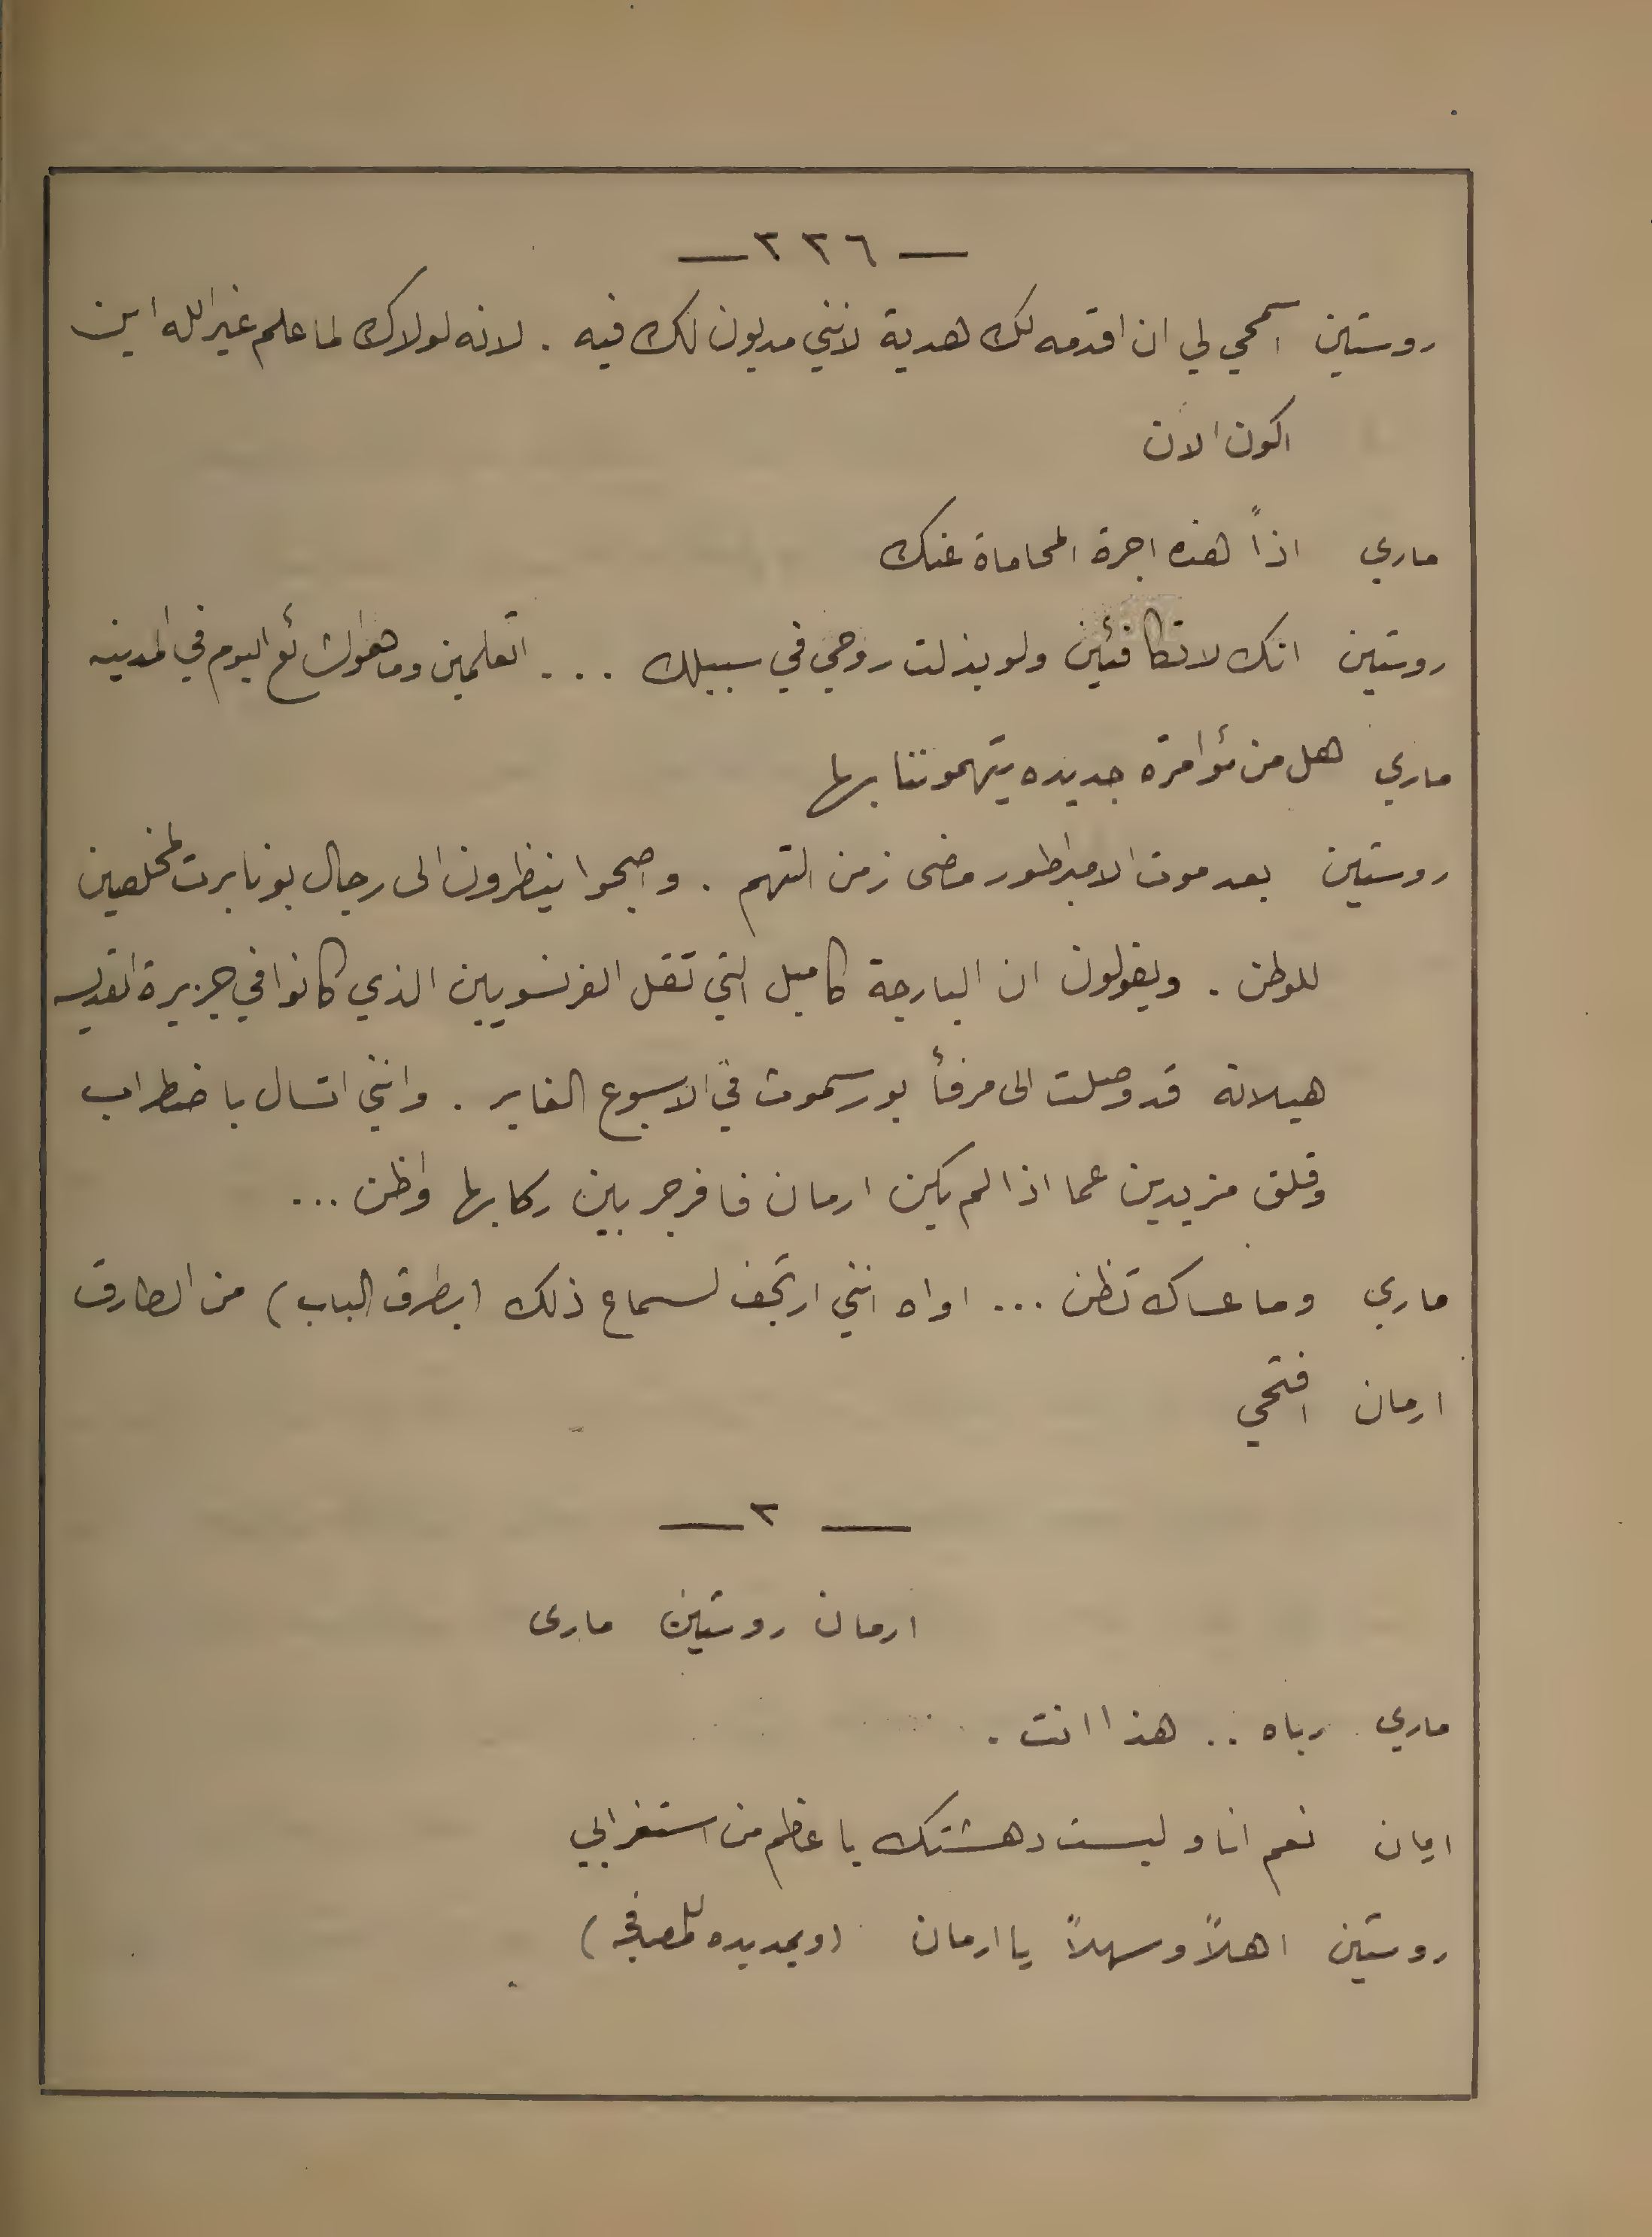 — ٣٣٦ —
روستين اسمحي لي ان اقدمه لك هدية لانني مديون لك فيه . لانه لولاك لما علم غير الله اين
اكون الان
ماري اذاً هذه اجرة المحاماة عنك
روستين انك لا تكافئين ولو بذلت روحي في سبيلك ... اتعلمين وما هو الشائع اليوم في المدينه
ماري هل من مؤامرة جديده يتهموننا بها
روستين بعد موت الامبراطور مضى زمن التهم . واصبحوا ينظرون الى رجال بونابرت كمخلصين
للوطن . ويقولون ان البارجة كاميل التي تقل الفرنسويين الذي كانوا في جزيرة القديسه
هيلانة قد وصلت الى مرفأ بورسموت في الاسبوع الغابر . وانني اتسال باضطراب
وقلق مزيدين عما اذا لم يكن ارمان فافرجر بين ركابها واظن ...
ماري وما عساك تظن ... اواه انني ارتجف لسماع ذلك (يطرق الباب) من الطارق
ارمان افتحي
— ٢ —
ارمان روستين مارى
ماري رباه .. هذا انت .
ارمان نعم انا وليست دهشتك باعظم من استغرابي
روستين اهلاً وسهلاً يا ارمان (ويمد يده للمصافحه)